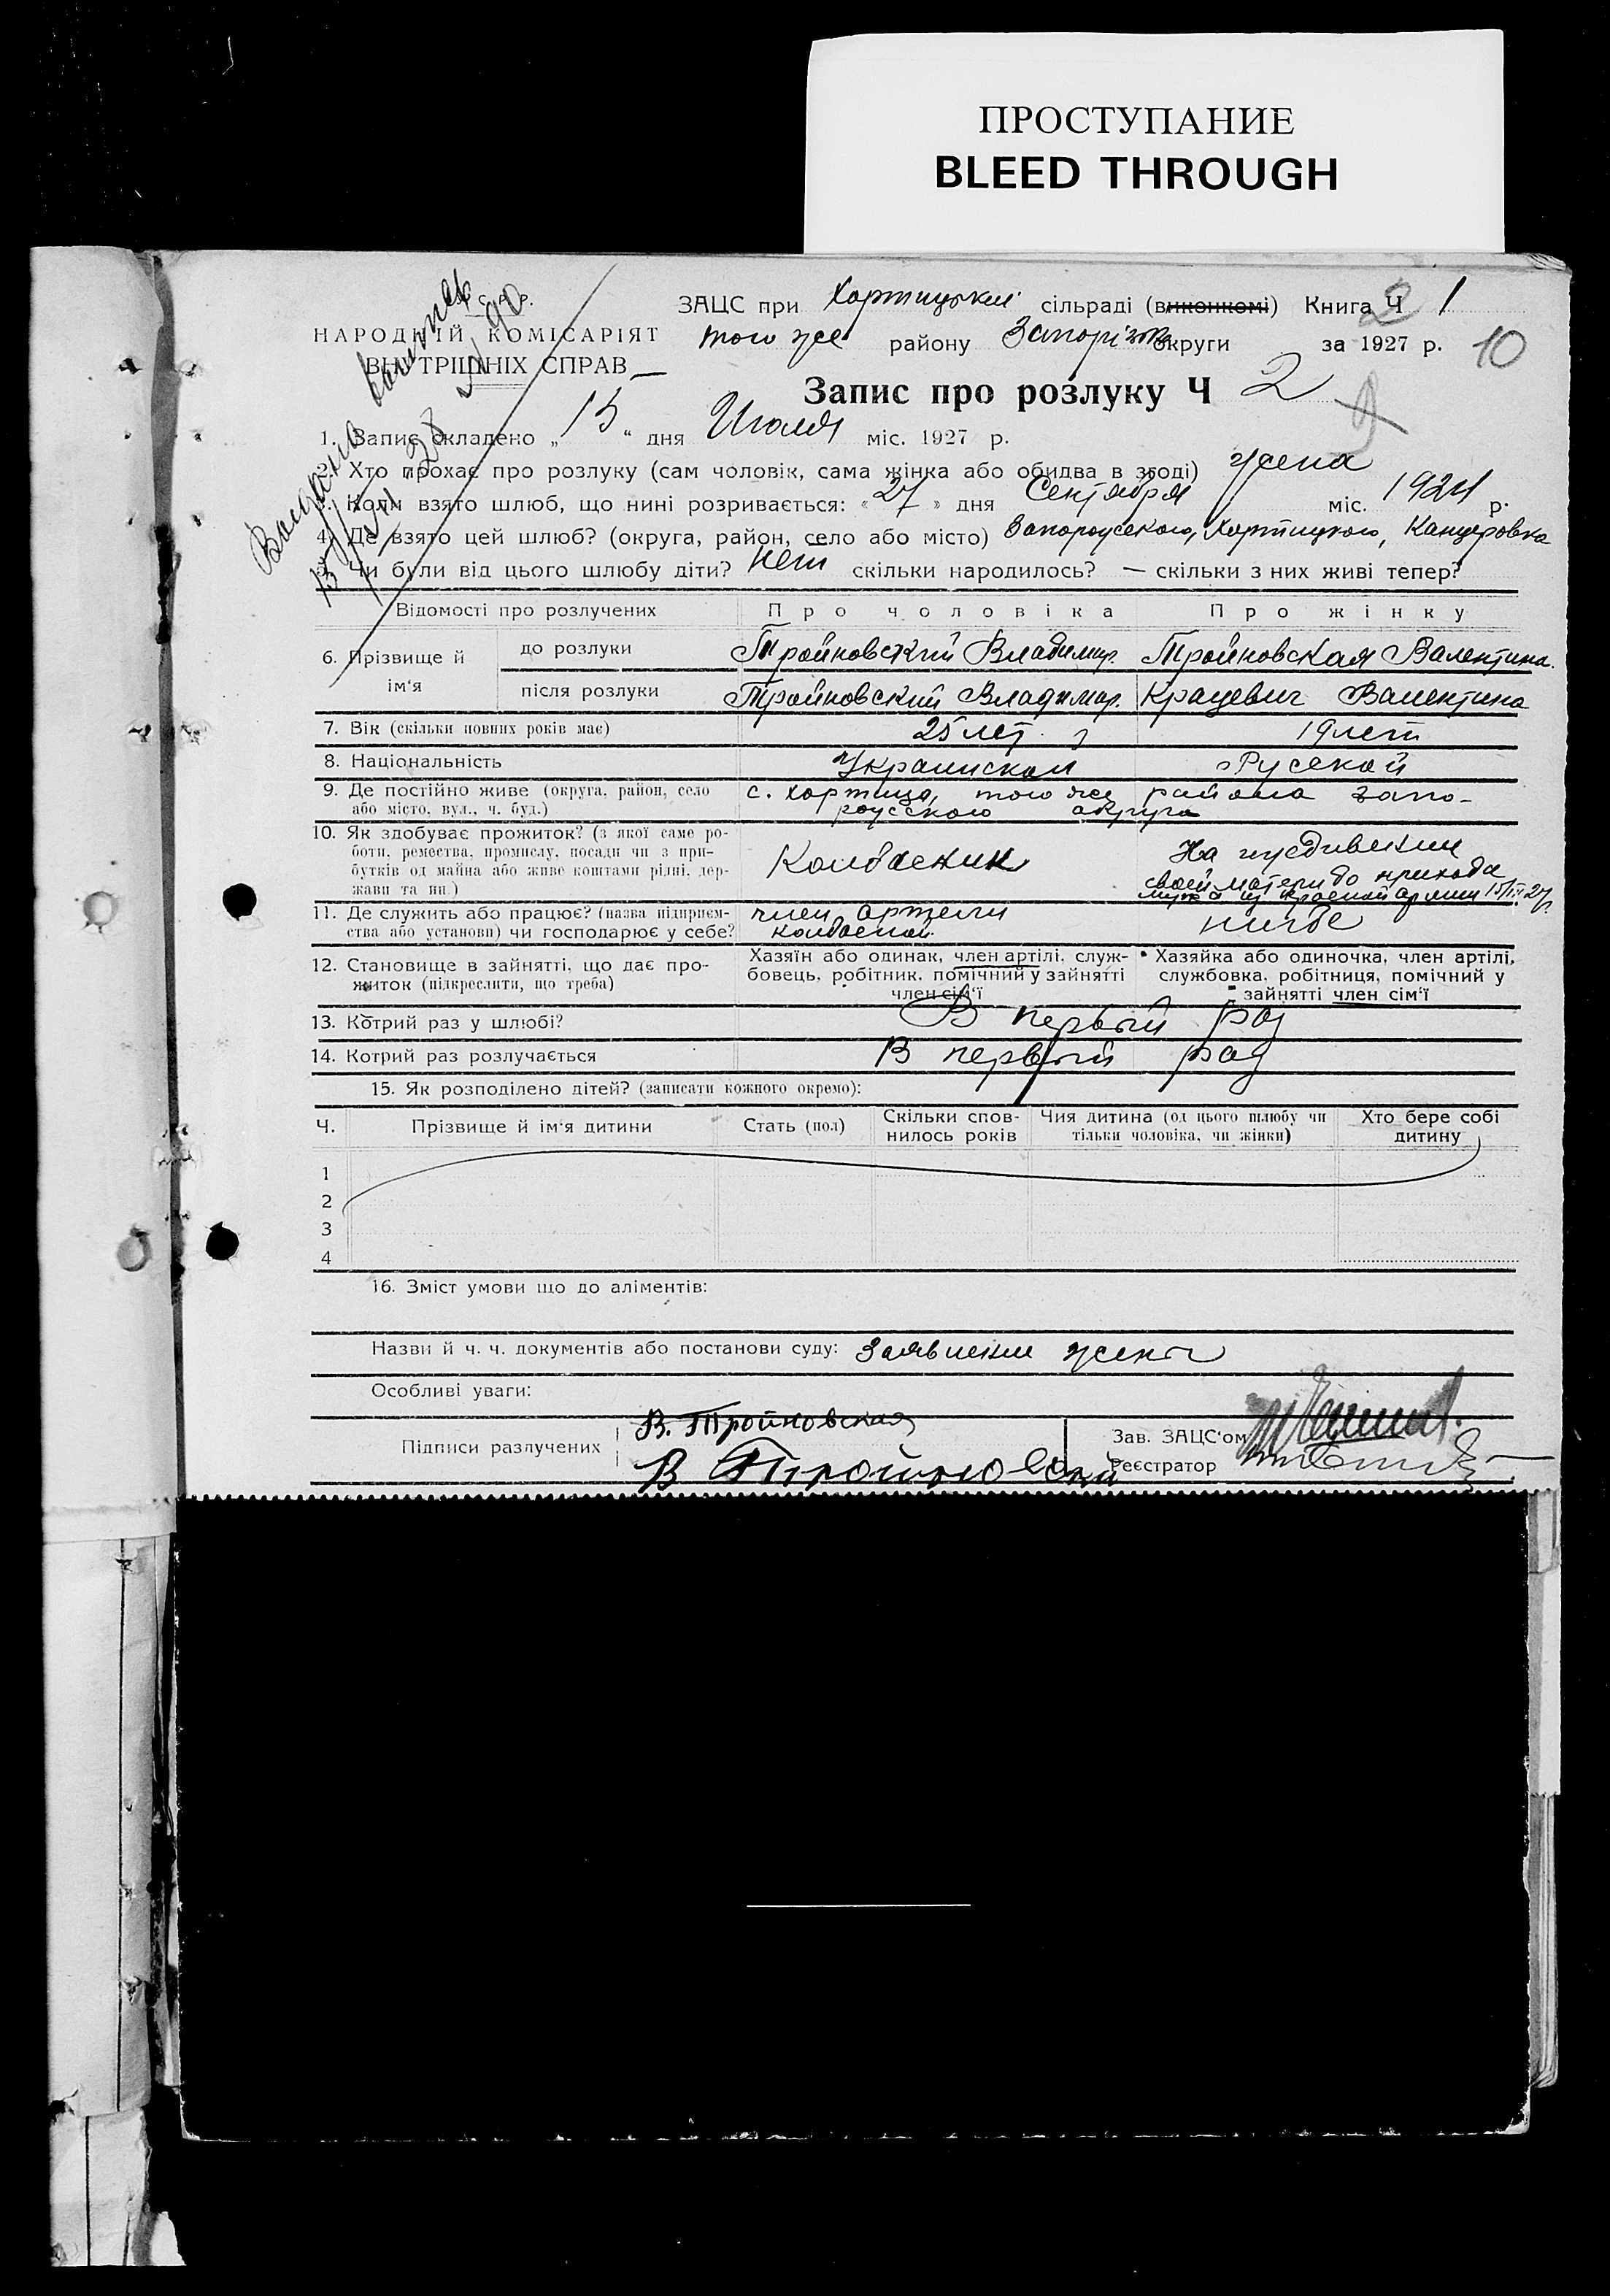 ПРОСТУПАНИЕ
BLEED THROUGH
ЗАЦС при Хортицькій сільраді (виконкомі) Книга Ч 1
НАРОДНІЙ КОМІСАРІЯТ
того же району Запорізьк округи за 1927 р. 10
ВНУТРІШНІХ СПРАВ
Запис про розлуку Ч 2
1. Запис складено „15“ дня Июля міс. 1927 р.
2. Хто прохає про розлуку (сам чоловік, сама жінка або обидва в згоді) жена
3. Коли взято шлюб, що нині розривається: «27» дня Сентября міс. 1924 р.
4. Де взято цей шлюб? (округа, район, село або місто) Запорожского, Хортицкого, Канцеровка
5. Чи були від цього шлюбу діти? Нет скільки народилось? — скільки з них живі тепер?
Відомості про розлучених Про чоловіка Про жінку
6. Прізвище й ім‘я до розлуки Тройновский Владимир. Тройновская Валентина.
після розлуки Тройновский Владимир. Крацевич Валентина
7. Вік (скільки повних років має) 25 лет 19 лет
8. Національність Украинской Русской
9. Де постійно живе (округа, район, село с. Хортица, того же района Запо-
або місто, вул., ч. буд.) рожского округа
10. Як здобуває прожиток? (з якої саме ро-
боти, ремества, промислу, посади чи з при-
бутків од майна або живе коштами рідні, дер-
жави та ин.)
Колбасник
На иждивении
своей матери до прихода
мужа из Красной армии 15/III 27 г.
11. Де служить або працює? (назва підприєм-
ства або установи) чи господарює у себе?
член артели
колбасной.
нигде
12. Становище в зайнятті, що дає про-
житок (підкреслити, що треба)
Хазяїн або одинак, член артілі, служ-
бовець, робітник, помічний у зайнятті
член сім‘ї
Хазяйка або одиночка, член артілі,
службовка, робітниця, помічний у
зайнятті член сім‘ї
13. Котрий раз у шлюбі? В первый раз
14. Котрий раз розлучається В первый раз
15. Як розподілено дітей? (записати кожного окремо):
Ч. Прізвище й ім‘я дитини Стать (пол) Скільки спов-
нилось років Чия дитина (од цього шлюбу чи
тільки чоловіка, чи жінки) Хто бере собі
дитину
1
2
3
4
16. Зміст умови що до аліментів:
Назви й ч. ч. документів або постанови суду: Заявление жены
Особливі уваги:
Підписи разлучених
В. Тройновская
В Тройновский
Зав. ЗАЦС‘ом
Реєстратор